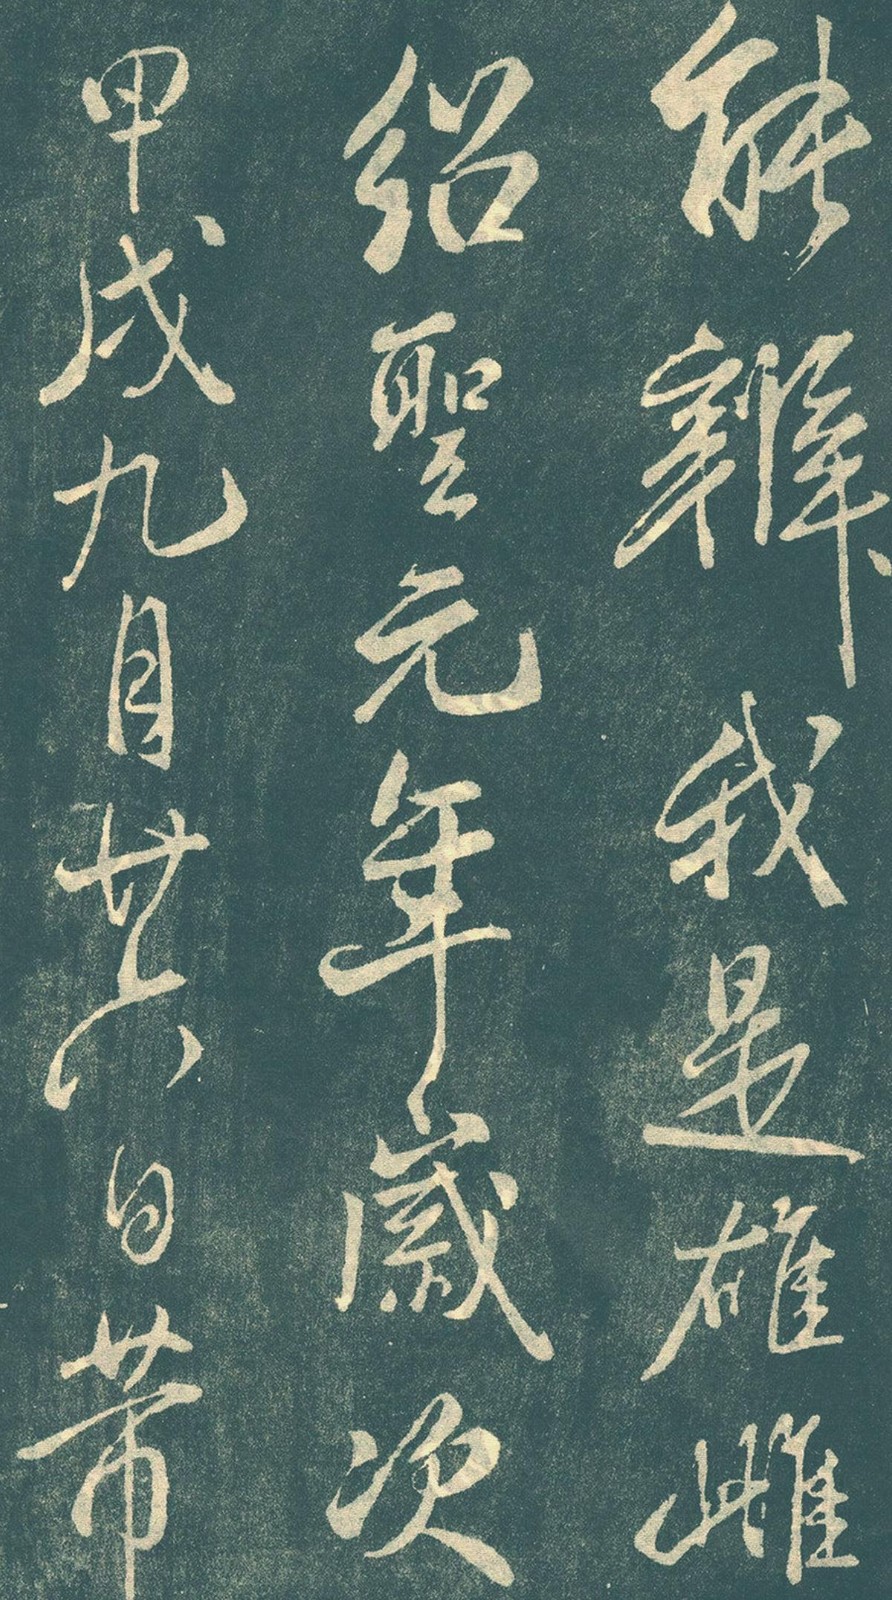 能辨我是雄雌
紹聖元年歲次
甲戌九月廿六日蒂